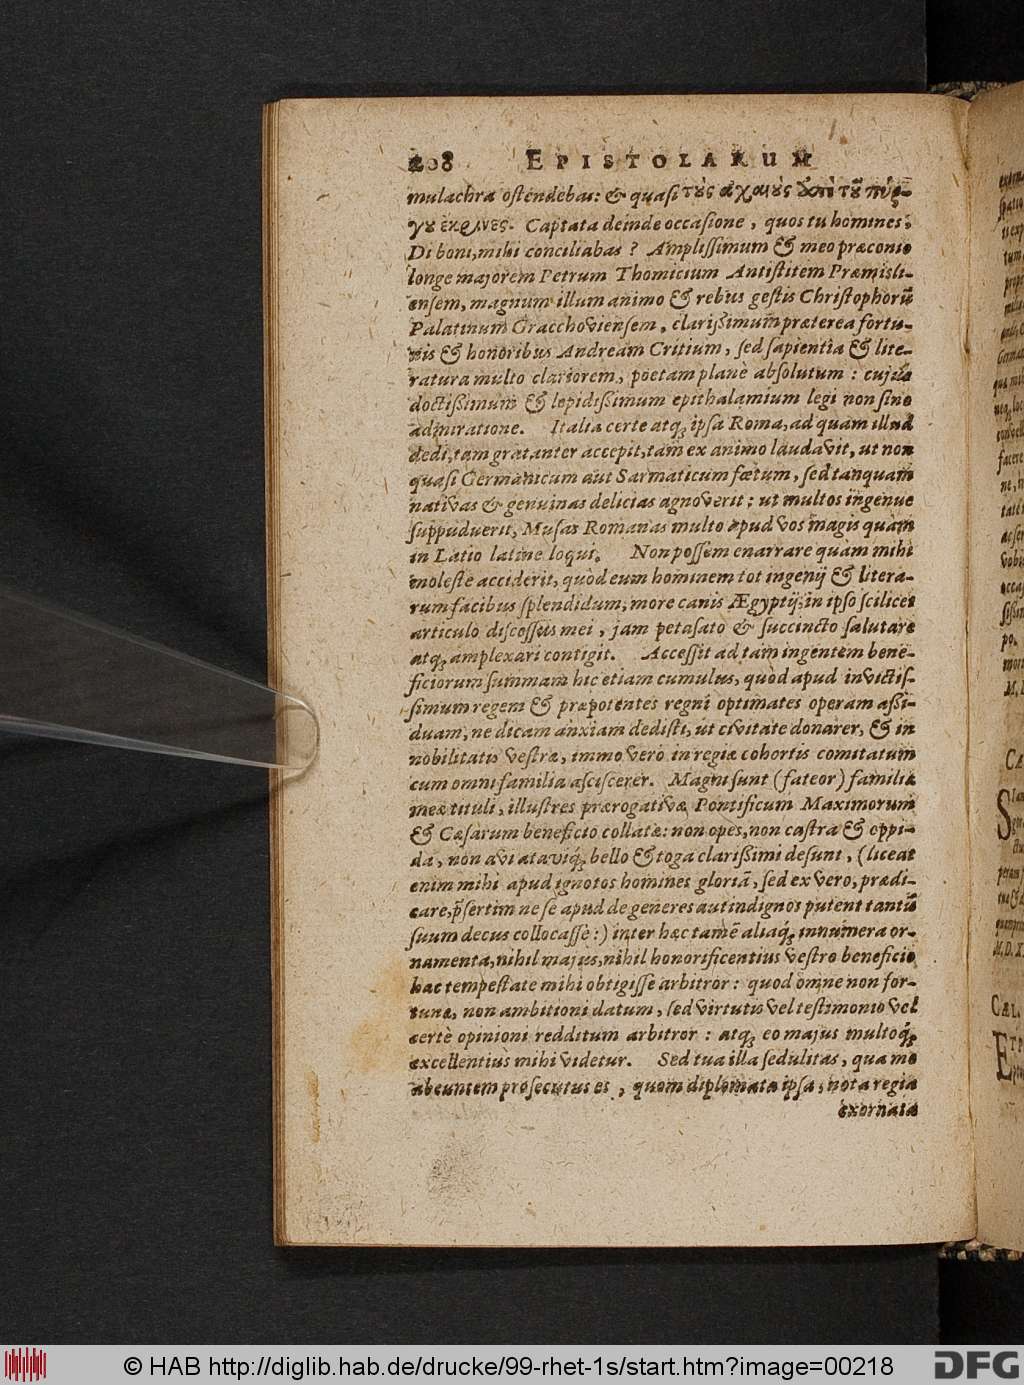 208 EPISTOLARUM
mulachra ostendebas: & quasi τȣ̀ς ἀχαιȣ̀ς ἀπὸ τȣ̃ πύρ-
γȣ ἔκρινες. Captata deinde occasione, quos tu homines,
Di boni, mihi conciliabas? Amplissimum & meo præconio
longe majorem Petrum Thomicium Antistitem Præmisli-
ensem, magnum illum animo & rebus gestis Christophorũ
Palatinum Gracchoviensem, clarißimum præterea fortu-
nis & honoribus Andream Critium, sed sapientia & lite-
ratura multo clariorem, poetam planè absolutum: cujus
doctißimum & lepidißimum epithalamium legi non sine
admiratione. Italia certe atq; ipsa Roma, ad quam illud
dedi, tam gratanter accepit, tam ex animo laudavit, ut non
quasi Germanicum aut Sarmaticum fœtum, sed tanquam
nativas & genuinas delicias agnoverit: ut multos ingenue
suppuduerit, Musas Romanas multo apud vos magis quàm
in Latio latine loqui. Non possem enarrare quàm mihi
moleste acciderit, quòd eum hominem tot ingenij & litera-
rum facibus splendidum, more canis Ægyptij, in ipso scilicet
articulo discessus mei, jam petasato & succincto salutare
atq; amplexari contigit. Accessit ad tam ingentem bene-
ficiorum summam hic etiam cumulus, quòd apud invictis-
simum regem & præpotentes regni optimates operam aßi-
duam, ne dicam anxiam dedisti, ut civitate donarer, & in
nobilitatis vestræ, immo verò in regiæ cohortis comitatum
cum omni familia asciscerer. Magni sunt (fateor) familiæ
meæ tituli, illustres prærogativæ Pontificum Maximorum
& Cæsarum beneficio collatæ: non opes, non castra & oppi-
da, non avi ataviq́; bello & toga clarißimi desunt, (liceat
enim mihi apud ignotos homines gloriã, sed ex vero, prædi-
care, p̃sertim ne se apud degeneres aut indignos putent tantũ
suum decus collocasse:) inter hæc tamẽ aliaq́; innumera or-
namenta, nihil majus, nihil honorificentius vestro beneficio
hac tempestate mihi obtigisse arbitror: quod omne non for-
tunæ, non ambitioni datum, sed virtutis vel testimonio vel
certè opinioni redditum arbitror: atq; eo majus multoq́;
excellentius mihi videtur. Sed tua illa sedulitas, qua me
abeuntem prosecutus es, quom diplomata ipsa, nota regia
exornata
© HAB http://diglib.hab.de/drucke/99-rhet-1s/start.htm?image=00218
DFG